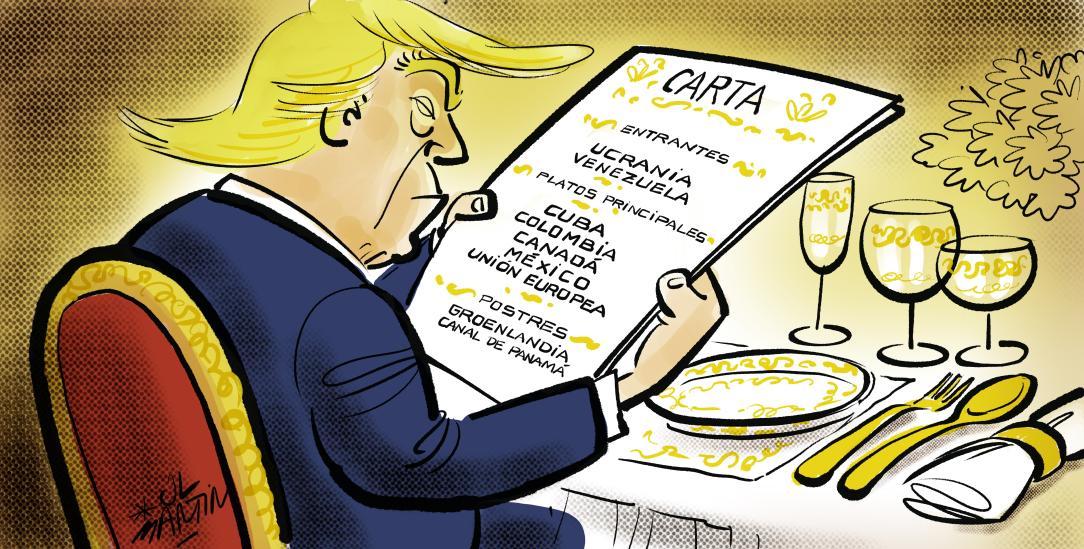 CARTA
ENTRANTES
UCRANIA
VENEZUELA
PLATOS PRINCIPALES
CUBA
COLOMBIA
CANADÁ
MÉXICO
UNIÓN EUROPEA
POSTRES
GROENLANDIA
CANAL DE PANAMÁ
MARTIN